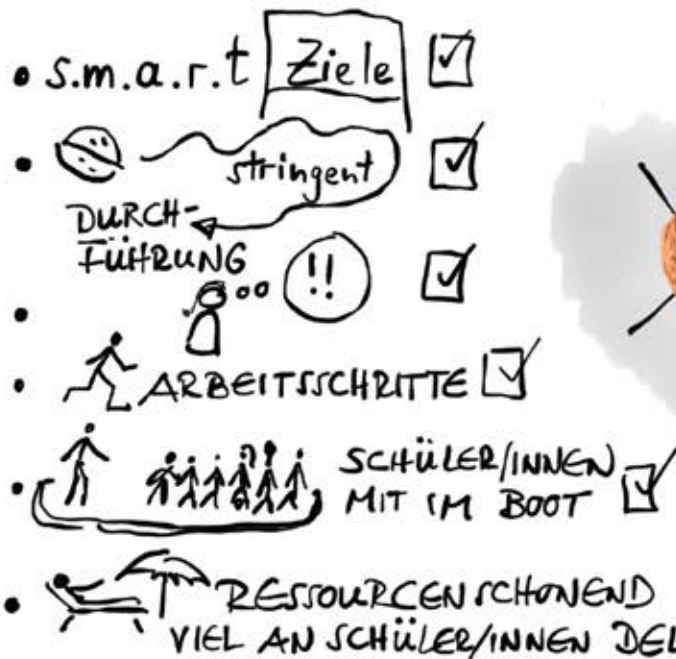 • s.m.a.r.t Ziele
• stringent
DURCH-
FÜHRUNG
• !!
• ARBEITSSCHRITTE
• SCHÜLER/INNEN
MIT IM BOOT
• RESSOURCENSCHONEND
VIEL AN SCHÜLER/INNEN